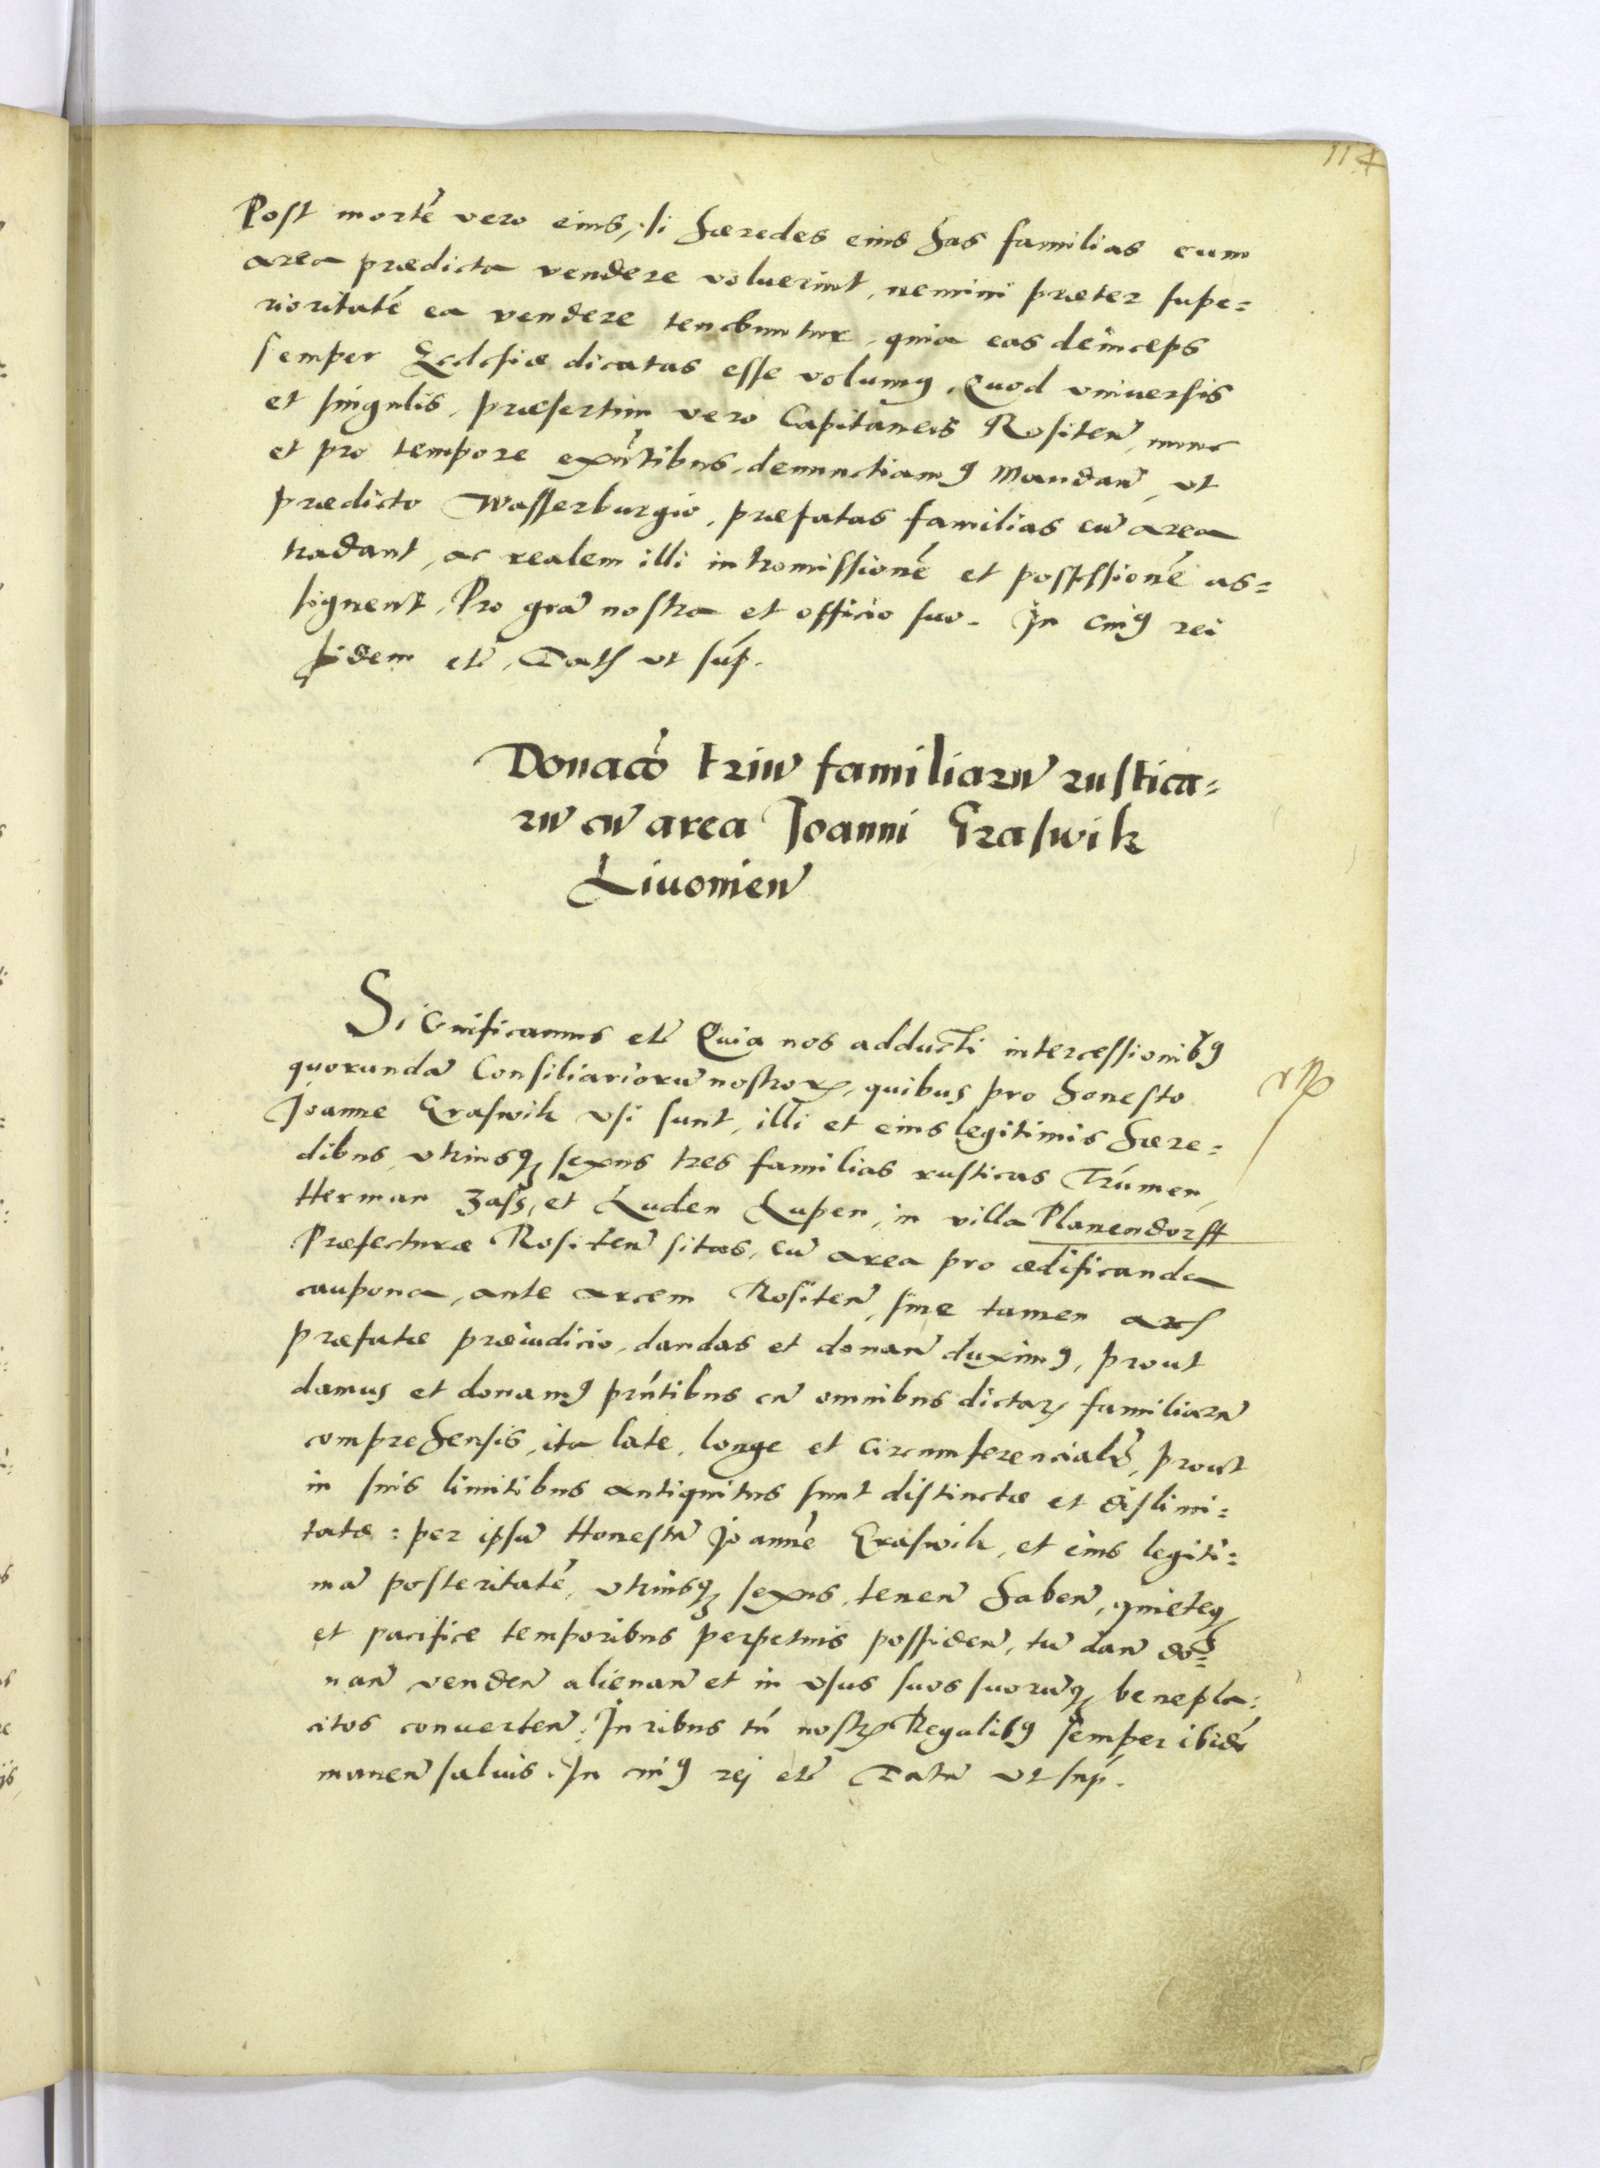 114
Post mortē vero eius, si hæredes eius has familias cum
area prædicta vendere voluerint, nemini præter supe=
rioritatē ea vendere tenebuntur, quia eas deinceps
semper Ecclesiæ dicatas esse volumꝰ. Quod vniuersis
et singulis, præsertim vero Capitaneis Rositen̄, nunc
et pro tempore exn̄tibus, denunctiamꝰ Mandan̄, vt
prædicto Wasserburgio, præfatas familias cū area
tradant, ac realem illi intromissionē et possessionē as=
signent, Pro grā nostra et officio suo. In cuiꝰ rei
fidem etc̄, Datꝭ vt sup̄.
Donacō triū familiarū rustica=
rū cū area Joanni Eraswik
Liuonien̄
Significamus etc̄ Quia nos adducti intercessionibꝰ
quorundā Consiliariorū nostroꝝ, quibus pro honesto
Joanne Eraswik vsi sunt, illi et eius legitimis hære=
dibus vtriusqꝫ sexus tres familias rusticas Trúmen,
Herman Zass, et Luden Lupen, in villa Planendorff
Præfecturæ Rositen̄ sitas, cū area pro ædificanda
caupona, ante arcem Rositen̄, sine tamen arꝭ
præfatæ præiudicio, dandas et donan̄ duximꝰ, prout
damus et donamꝰ prn̄tibus cū omnibus dictaꝝ familiarū
comprehensis, ita late, longe et circumferencialr̄, prout
in suis limitibus antiquitus sunt distinctæ et dislimi=
tatæ: per ipsū Honestū Joannē Eraswik, et eius legiti=
mā posteritatē, vtriusqꝫ sexus, tenen̄ haben̄, quieteqꝫ
et pacifice temporibus perpetuis possiden̄, tū dan̄ do=
nan̄ venden̄ alienan̄ et in vsus suos suorūqꝫ benepla=
citos conuerten̄. Iuribus tn̄ nostꝝ Regalibꝰ semper ibidē
manen̄ saluis. In cuiꝰ rej etc̄ Datū vt sup̄.